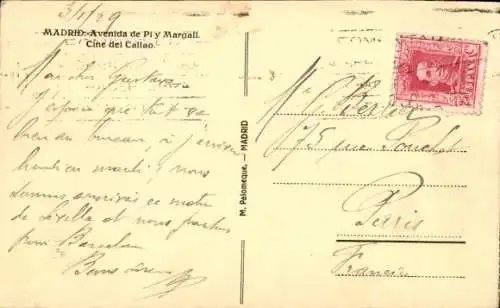 3/1/29
MADRID.-Avenida de Pi y Margall.
Cine del Callao.
Mon cher Gustave
J'espère que tu
bien au bureau, j'arriverai
lundi ou mardi; nous
sommes arrivés ce matin
de Séville et nous partons
pour Barcelone
M. Palomeque.—MADRID
75 rue Pouchet
Paris
France